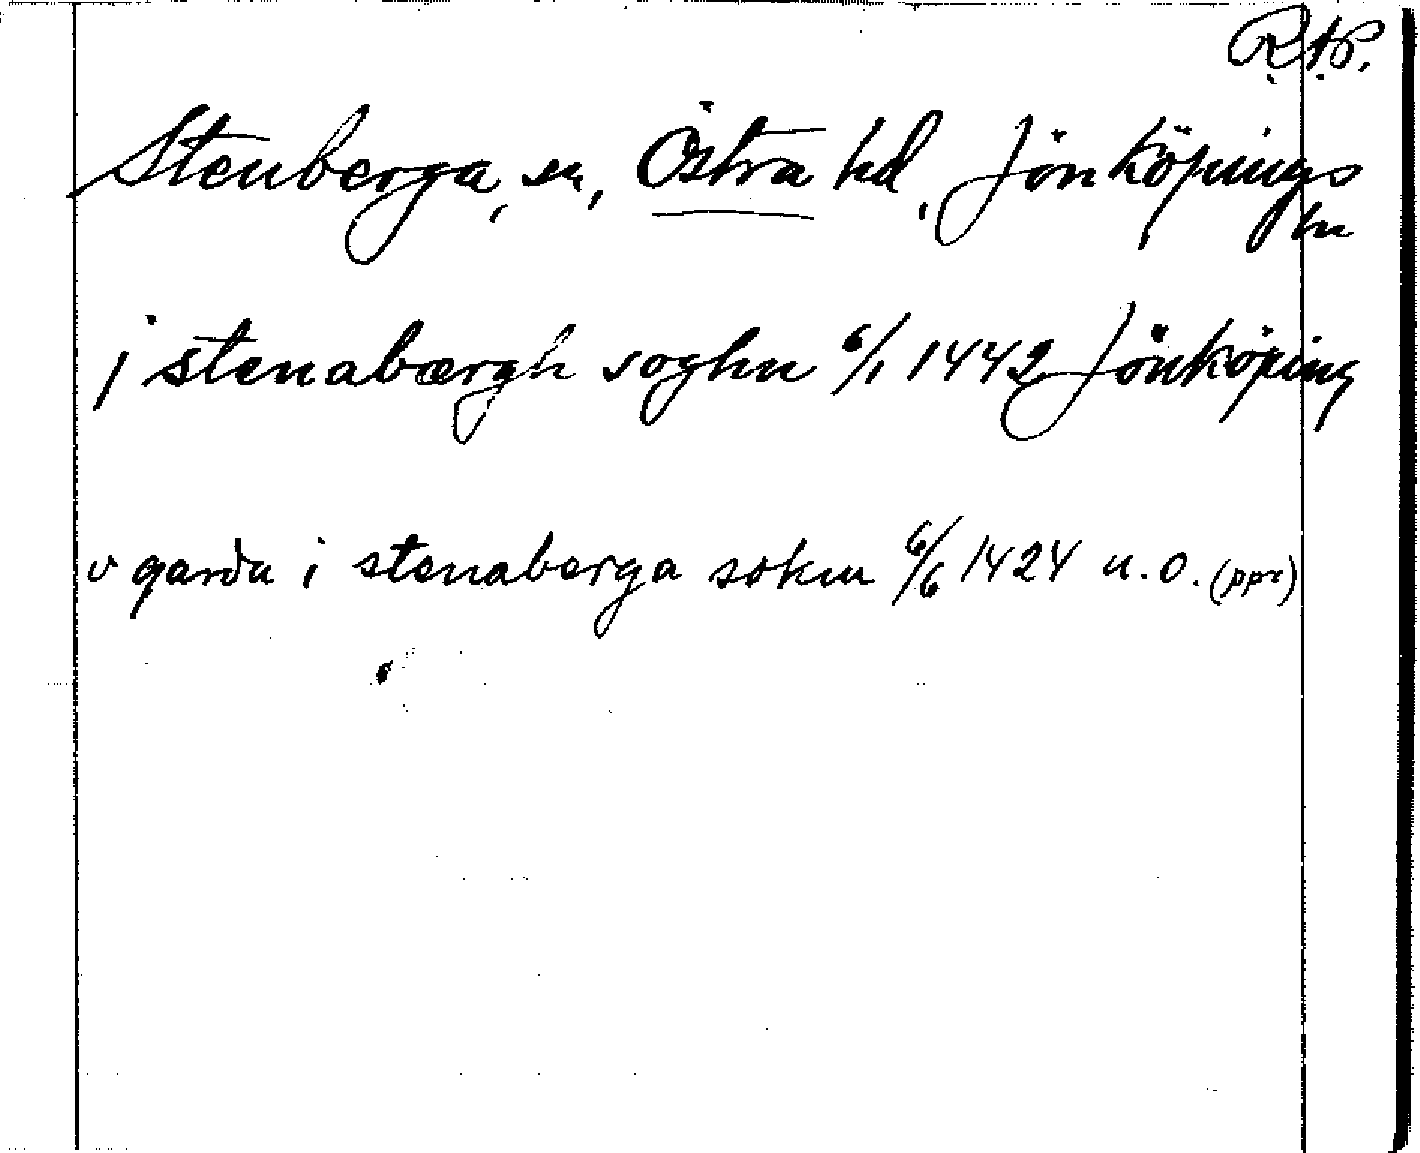 R.A.P.
Stenberga, sn, Östra hd, Jönköpings
ln
j stenabærgh soghn 6/1 1442 Jönköping
v garda i stenaberga sokn 6/6 1424 u.o. (ppr)